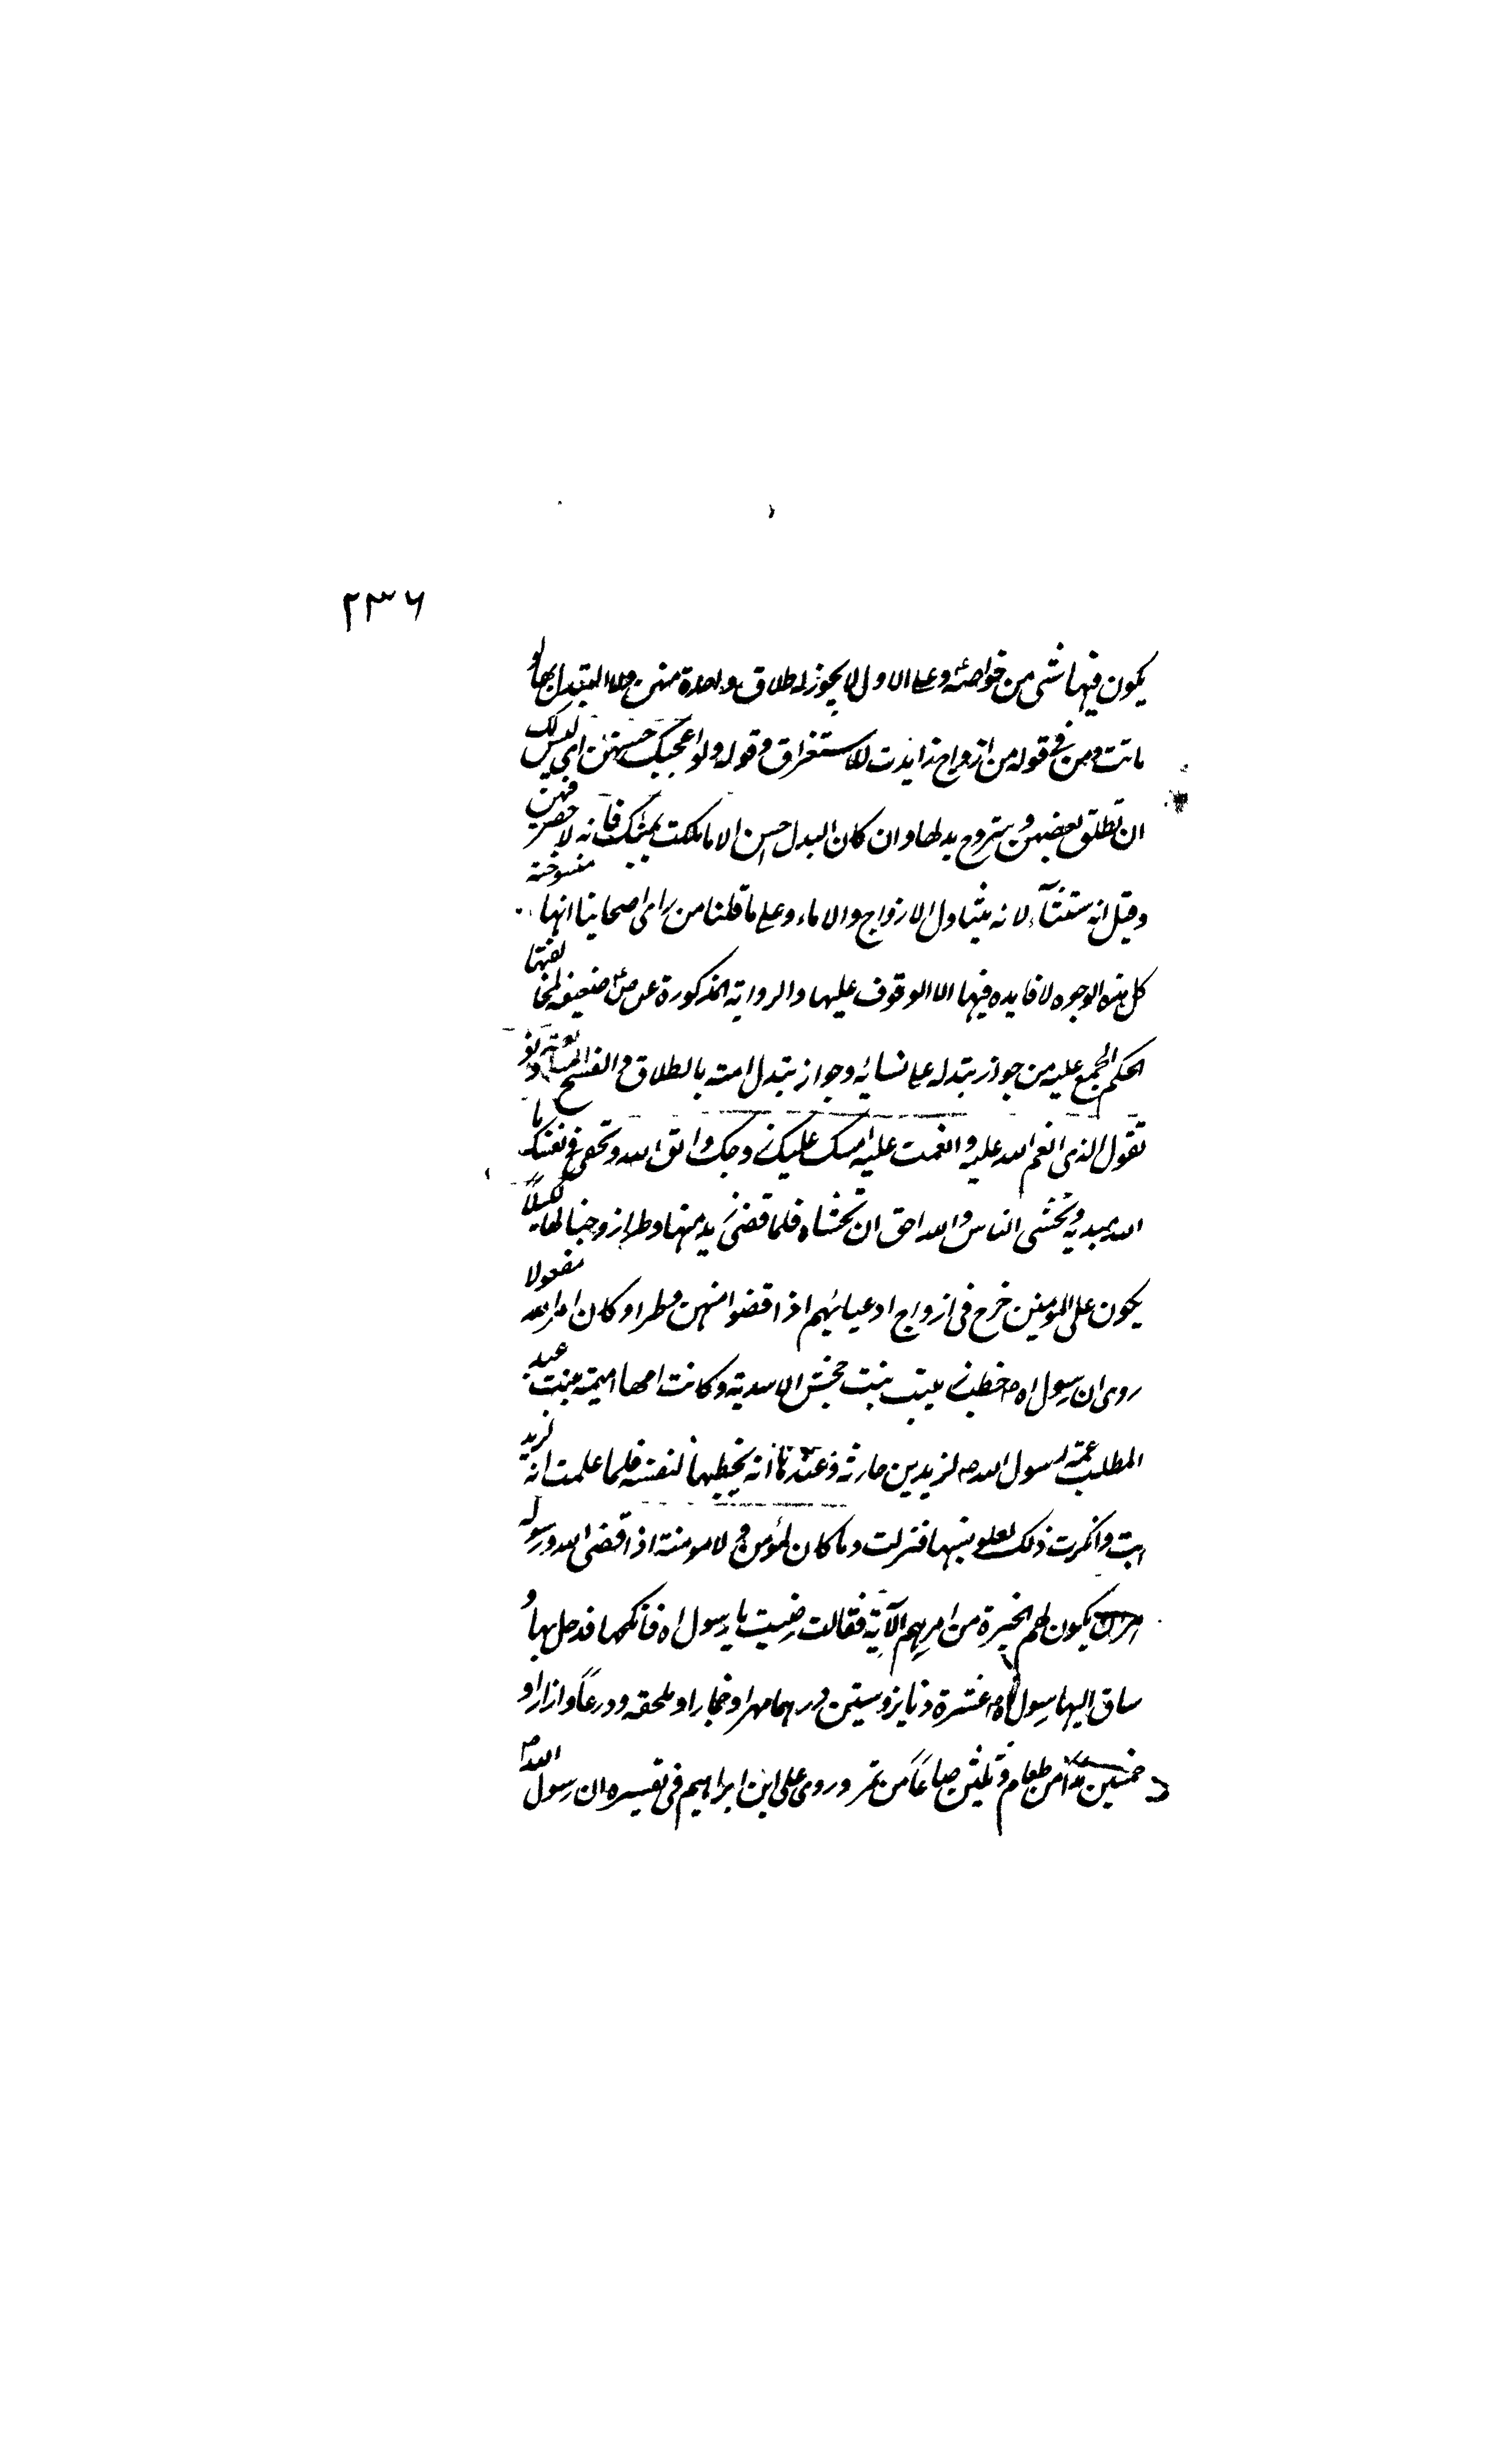 ٢٣٦
يكون فيها شى من خواصه وعلى الاول لا يجوز له طلاق واحدة منهن ولا التبدل بها لو
ماتت ومن فى قوله من ازواج زايدت للاستغراق وقوله ولو اعجبك حسنهن اى ليس لك
ان تطلق بعضهن و يتزوج بدلها وان كان البدل احسن الا ما ملكت يمينك فانه لا حصر فيهن
وقيل انه ستثنآء لانه يتناول الازواج والاماء وعلى ما قلنا من راى اصحابنا انها منسوخة
كل هذه الوجوه لا فايده فيها الا الوقوف عليها والرواية المذكورة عن ص ضعيفه لمخالفتها
الحكم المجمع عليه من جواز تبدله على نسائه وجواز تبدل امته بالطلاق والفسخ
تقول للذى انعم الله عليه وانعمت عليه امسك عليك زوجك واتق الله وتخفى فى نفسك ما
الله مبديه وتخشى الناس والله احق ان تخشاه فلما قضى زيد منها وطرا زوجناكها لكيلا
يكون على المومنين حرج فى ازواج ادعيائهم اذا قضوا منهن وطرا وكان امر الله مفعولا
روى ان رسول اه ص خطب زينب بنت جحش الاسدية وكانت امها اميمة بنت عبد
المطلب عمة رسول الله ص لزيد بن حارثه فظنت انه يخطبها لنفسه فلما علمت انه لزيد
ابت وانكرت ذلك لعلو نسبها فنزلت وما كان لمؤمن ولا مومنة اذا قضى الله ورسوله
امرا ان يكون لهم الخيرة من امرهم الآية فقالت رضيت يا رسول اه فانكحها فدخل بها و
ساق اليها رسول اه ص عشرة دنانير وستين درهما مهرا وخمارا وملحفه ودرعاً وازارا و
خمسين مداً من طعام وثلثين صاعاً من تمر وروى على ابن ابراهيم فى تفسيره ان رسول الله ص